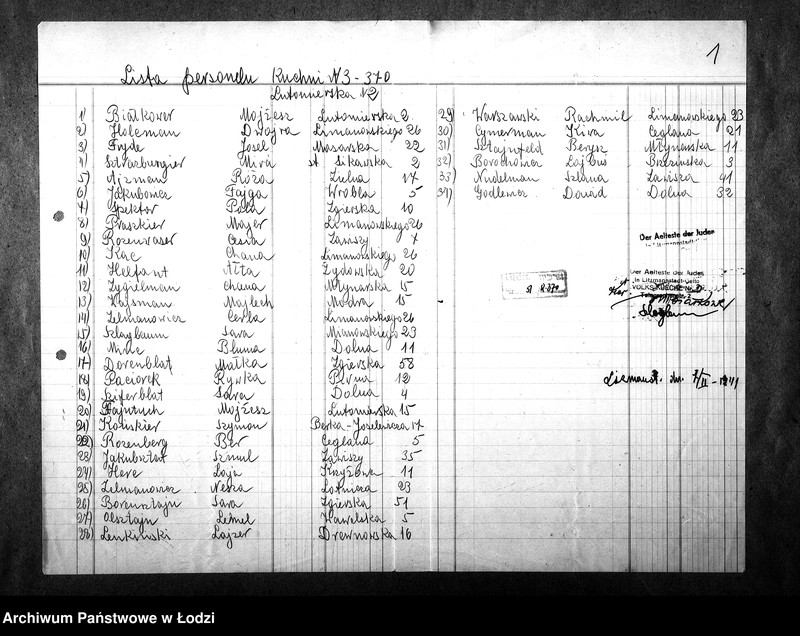 1
Lista personelu Kuchni N3-370
Lutomierska N2
1) Białkower Mojżesz Lutomierska 2
2) Holcman Dwojra Limanowskiego 26
3) Fryde Josel Masarska 22
4) Szwarbergier Mira st Sikawska 2
5) Ajzman Róża Żulna 17
6) Jakubowicz Fajga Wrobla 5
7) Spektor Zgierska 10
8) Praszkier Majer Limanowskiego 26
9) Rozenwaser Cesia Zawiszy 7
10) Kac Chana Limanowskiego 26
11) Helfant Alta Żydowska 20
12) Zygielman Chana Młynarska 15
13) Majlech Modra 15
14) Zelmanowicz Cerka Limanowskiego 26
15) Szlagbaum Sara Mianowskiego 23
16) Bluma Dolna 11
17) Dorenblat Małka Zgierska 58
18) Paciorek Rywka 12
19) Sziferblat Sara Dolna 4
20) Mojżesz Lutomierska 15
21) Szymon Berka-Joselewicza 17
22) Rozenberg Ber Ceglana 5
23) Jakubsztat Szmul Zawiszy 35
24) Herc Laja Krzyżowa 11
25) Zelmanowicz Necha Lotnicza 23
26) Borensztajn Sara Zgierska 51
27) Olsztajn Lemel Kawelska 5
28) Lenkiński Lajzer Drewnowska 16
29) Warszawski Rachmil Limanowskiego 23
30) Cymerman Kiva Ceglana 21
31) Sztajnfeld Berysz Młynarska 11
32) Borochowicz Lajbus Brzezinska 3
33) Nudelman Szlama Zawisza 41
34) Godlewicz Dawid Dolna 32
Der Aelteste der Juden
in Litzmannstadt
Der Aelteste der Juden
in Litzmannstadt-Getto
VOLKS-KUECHE
Szlagbaum
Litzmanst. dn. 7/II-1941
Archiwum Państwowe w Łodzi